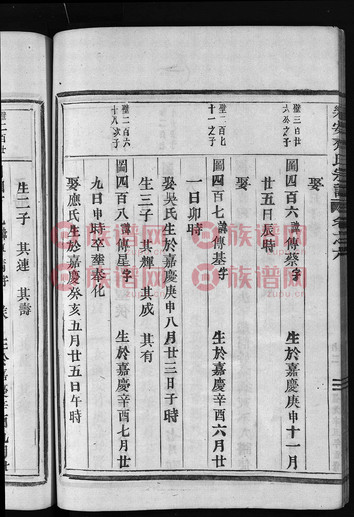 娶
璧三百廿
六公之子
圖四百六 諱傳蔡字 生於嘉慶庚申十一月
廿五日辰時
娶
璧二百七
十一之子
圖四百七 諱傳基字 生於嘉慶辛酉六月廿
一日卯時
娶吳氏生於嘉慶庚申八月廿三日子時
生三子 其輝 其成 其有
璧二百七
十八欽子
圖四百八 諱傳星字 生於嘉慶辛酉七月廿
九日申時卒塟奉化
娶應氏生於嘉慶癸亥五月廿五日午時
生二子 其連 其壽
族谱网